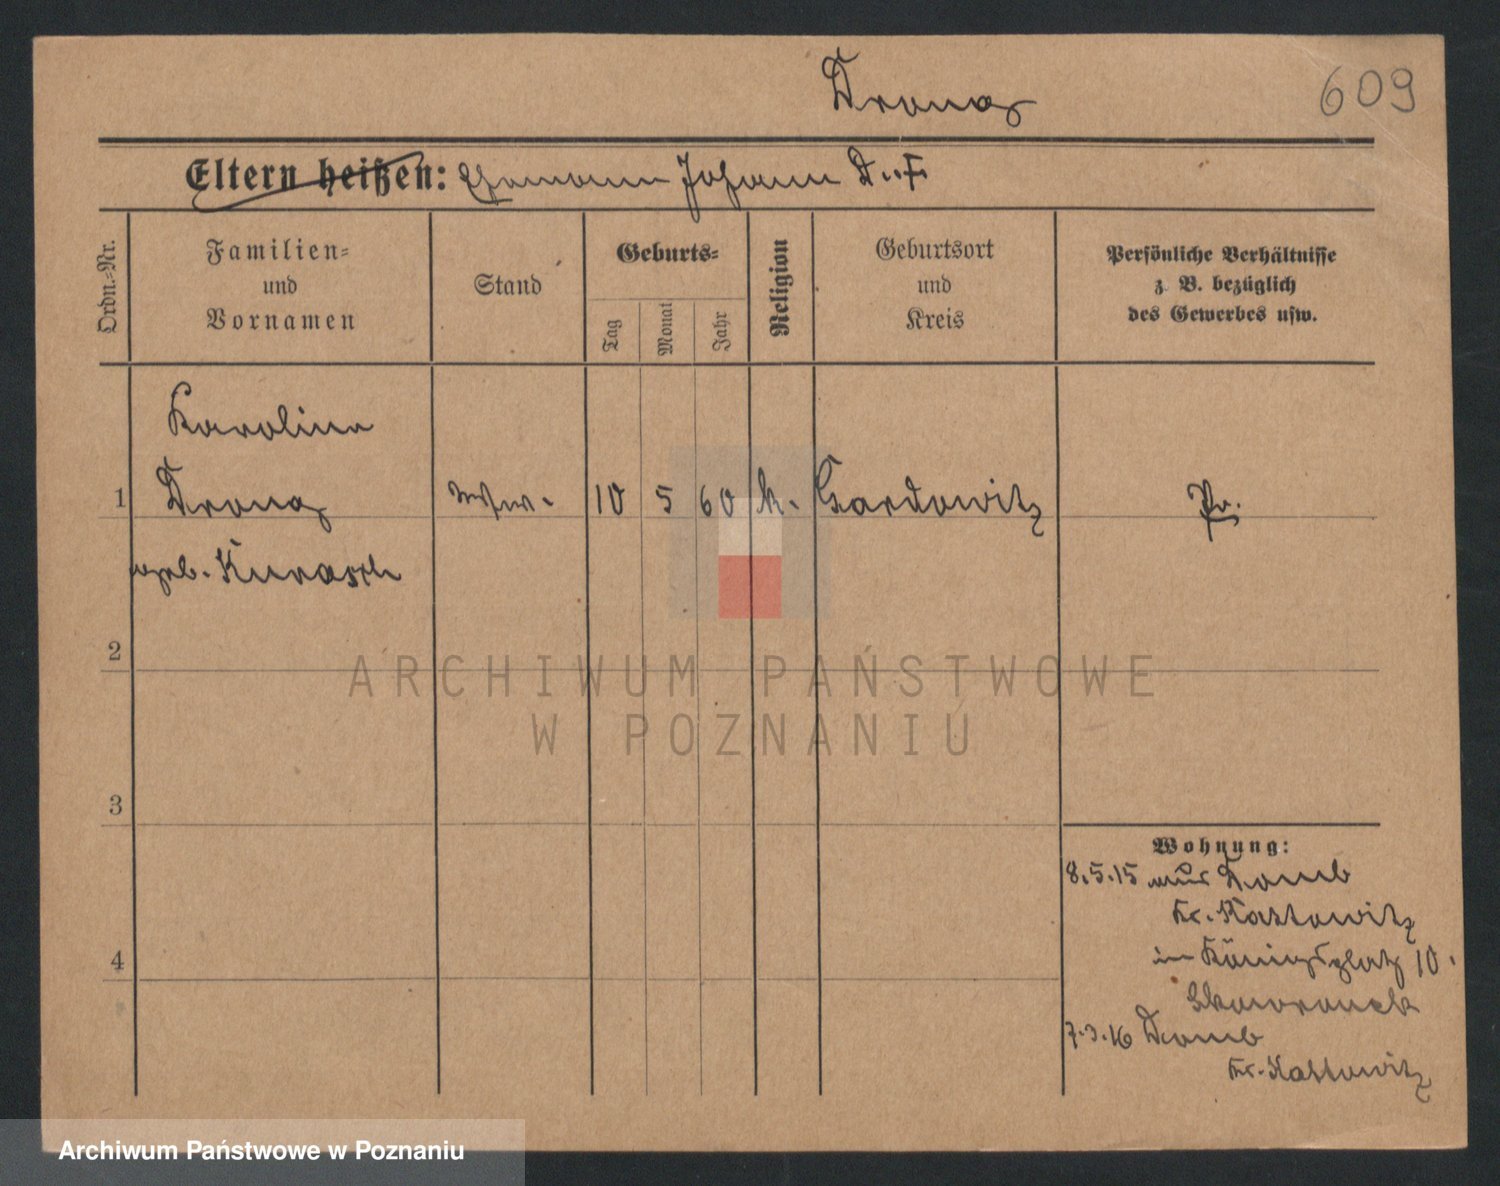 Dronos
609
Eltern heißen: Ehemann Johann D..F.
Ordn.=Nr.
Familien=
und
Vornamen
Stand
Geburts=
Tag
Monat
Jahr
Religion
Geburtsort
und
Kreis
Persönliche Verhältnisse
z. B. bezüglich
des Gewerbes usw.
Karolina
1 Dronos Ww. 10 5 60 k. Gardowitz Pr.
geb.
2
3
4
Wohnung:
8.5.15 aus Domb
Kr. Kattowitz
in Königsplatz 10.
Skowronek
7.3.16 Domb
Kr. Kattowitz
ARCHIWUM PAŃSTWOWE
W POZNANIU
Archiwum Państwowe w Poznaniu